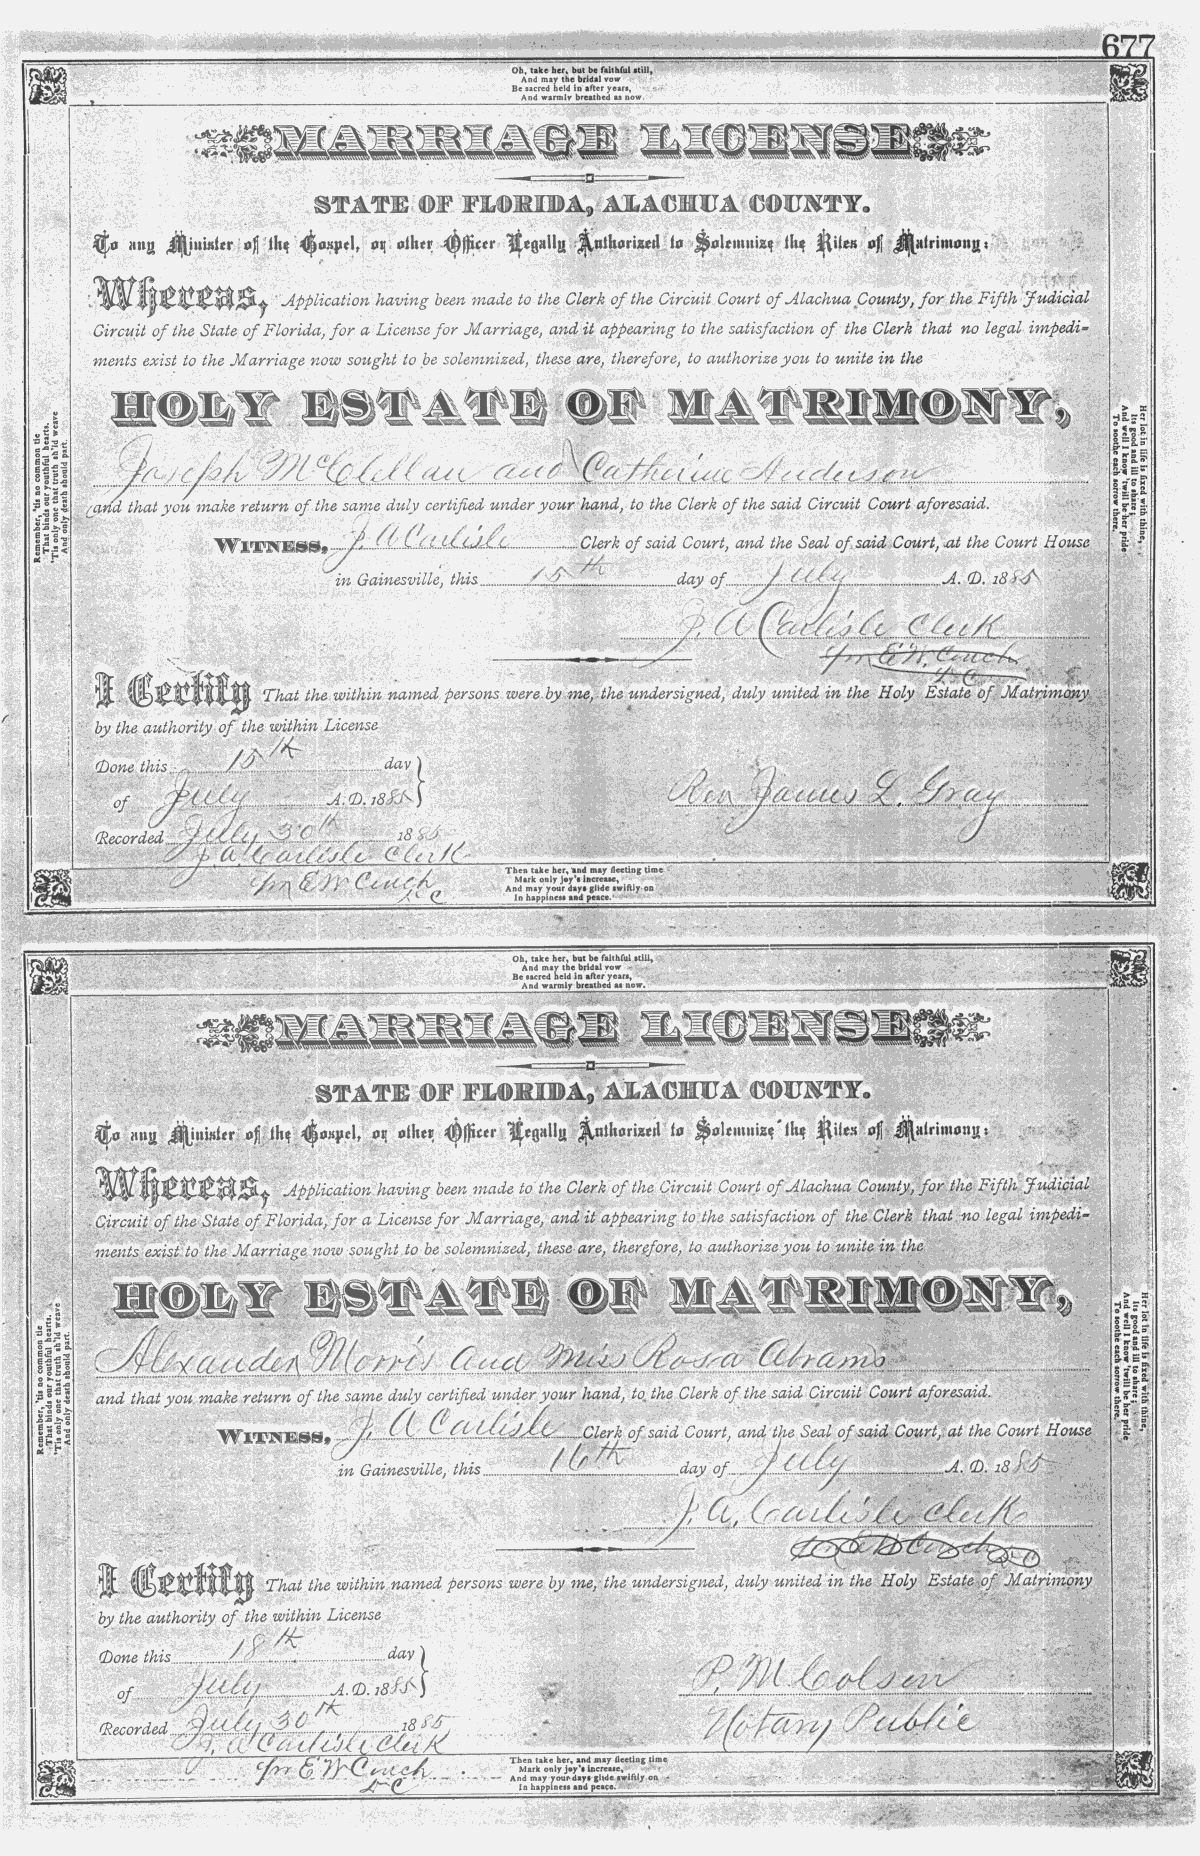 677
Oh, take her, but be faithful still,
And may the bridal vow
Be sacred held in after years,
And warmly breathed as now.
MARRIAGE LICENSE
STATE OF FLORIDA, ALACHUA COUNTY.
To any Minister of the Gospel, or other Officer Legally Authorized to Solemnize the Rites of Matrimony:
Whereas, Application having been made to the Clerk of the Circuit Court of Alachua County, for the Fifth Judicial
Circuit of the State of Florida, for a License for Marriage, and it appearing to the satisfaction of the Clerk that no legal impedi-
ments exist to the Marriage now sought to be solemnized, these are, therefore, to authorize you to unite in the
HOLY ESTATE OF MATRIMONY,
Joseph McClellan and Catherine Anderson
and that you make return of the same duly certified under your hand, to the Clerk of the said Circuit Court aforesaid.
WITNESS, J. A Carlisle Clerk of said Court, and the Seal of said Court, at the Court House
in Gainesville, this 15th day of July A. D. 1885
J. A Carlisle Clerk
per E. W. Cinch
D C
I Certify That the within named persons were by me, the undersigned, duly united in the Holy Estate of Matrimony
by the authority of the within License
Done this 15th day
of July A. D. 1885
Rev James L. Gray
Recorded July 30th 1885
J. A. Carlisle Clerk
per E W Cinch
D C
Remember, 'tis no common tie
That binds our youthful hearts.
'Tis only one that truth sh'ld weave
And only death should part.
Her lot in life is fixed with thine,
Its good and ill to share;
And well I know 'twill be her pride
To soothe each sorrow there.
Then take her, and may fleeting time
Mark only joy's increase,
And may your days glide swiftly on
In happiness and peace.
Oh, take her, but be faithful still,
And may the bridal vow
Be sacred held in after years,
And warmly breathed as now.
MARRIAGE LICENSE
STATE OF FLORIDA, ALACHUA COUNTY.
To any Minister of the Gospel, or other Officer Legally Authorized to Solemnize the Rites of Matrimony:
Whereas, Application having been made to the Clerk of the Circuit Court of Alachua County, for the Fifth Judicial
Circuit of the State of Florida, for a License for Marriage, and it appearing to the satisfaction of the Clerk that no legal impedi-
ments exist to the Marriage now sought to be solemnized, these are, therefore, to authorize you to unite in the
HOLY ESTATE OF MATRIMONY,
Alexander Morris and Miss Rosa Abrams
and that you make return of the same duly certified under your hand, to the Clerk of the said Circuit Court aforesaid.
WITNESS, J. A Carlisle Clerk of said Court, and the Seal of said Court, at the Court House
in Gainesville, this 16th day of July A. D. 1885
J. A. Carlisle Clerk
I Certify That the within named persons were by me, the undersigned, duly united in the Holy Estate of Matrimony
by the authority of the within License
Done this 18th day
of July A. D. 1885
P. M Colson
Notary Public
Recorded July 30th 1885
J. A Carlisle Clerk
per E W Cinch
D C
Remember, 'tis no common tie
That binds our youthful hearts.
'Tis only one that truth sh'ld weave
And only death should part.
Her lot in life is fixed with thine,
Its good and ill to share;
And well I know 'twill be her pride
To soothe each sorrow there.
Then take her, and may fleeting time
Mark only joy's increase,
And may your days glide swiftly on
In happiness and peace.